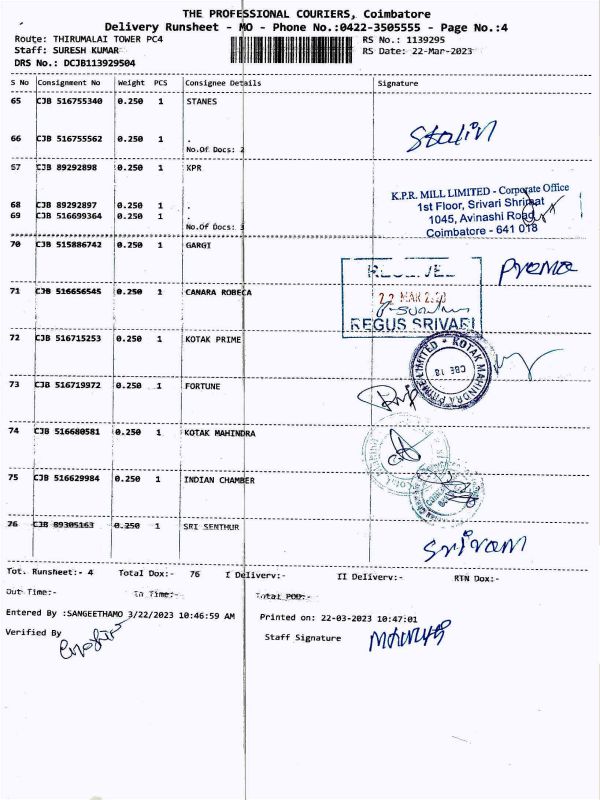 THE PROFESSIONAL COURIERS, Coimbatore
Delivery Runsheet - MO - Phone No.:0422-3505555 - Page No.:4
Route: THIRUMALAI TOWER PC4 RS No.: 1139295
Staff: SURESH KUMAR RS Date: 22-Mar-2023
DRS No.: DCJB113929504
S No Consignment No Weight PCS Consignee Details Signature
65 CJB 516755340 0.250 1 STANES
66 CJB 516755562 0.250 1 .
No.Of Docs: 2
Stalin
67 CJB 89292898 0.250 1 KPR
68 CJB 89292897 0.250 1 .
69 CJB 516699364 0.250 1
No.Of Docs: 3
K.P.R. MILL LIMITED - Corporate Office
1st Floor, Srivari Shrimat
1045, Avinashi Road
Coimbatore - 641 018
70 CJB 515886742 0.250 1 GARGI
Prema
RECEIVED
22 MAR 2023
REGUS SRIVARI
71 CJB 516656545 0.250 1 CANARA ROBECA
72 CJB 516715253 0.250 1 KOTAK PRIME
KOTAK MAHINDRA PRIME LIMITED
CBE 18
73 CJB 516719972 0.250 1 FORTUNE
74 CJB 516680581 0.250 1 KOTAK MAHINDRA
75 CJB 516629984 0.250 1 INDIAN CHAMBER
76 CJB 89305163 0.250 1 SRI SENTHUR
Sriram
Tot. Runsheet:- 4 Total Dox:- 76 I Delivery:- II Delivery:- RTN Dox:-
Out Time:- In Time:- Total POD:-
Entered By :SANGEETHAMO 3/22/2023 10:46:59 AM Printed on: 22-03-2023 10:47:01
Verified By Staff Signature